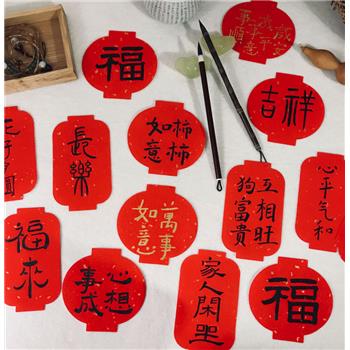 福
吉祥
長樂
柿柿
如意
狗富貴
互相旺
心平氣和
萬事
如意
福來
心想
事成
家人閑坐
福